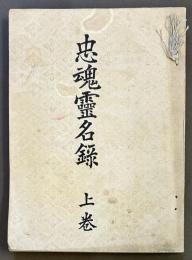 忠魂靈名錄
上卷